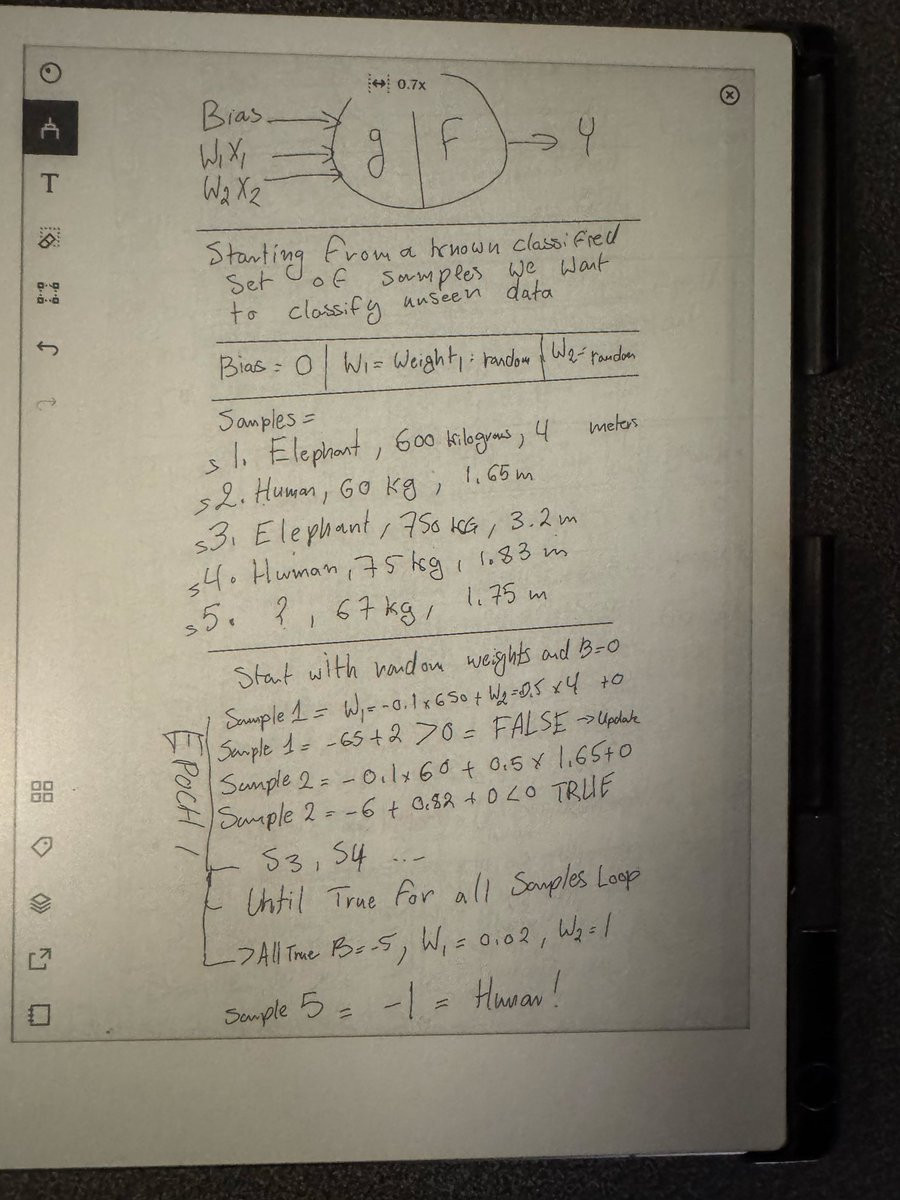 0.7x
Bias
g | F
Y
W1X1
W2X2
T
Starting from a known classified
set of samples we want
to classify unseen data
Bias = 0 | W1 = Weight1 = random | W2 = random
Samples =
s1. Elephant, 600 kilograms, 4 meters
s2. Human, 60 kg, 1.65m
s3. Elephant, 750 KG, 3.2 m
s4. Human, 75 kg, 1.83 m
s5. ?, 67 kg, 1.75 m
Start with random weights and B=0
EPOCH 1
Sample 1 = W1=-0.1x650 + W2=0.5 x 4 +0
Sample 1 = -65+2 >0 = FALSE → Update
Sample 2 = -0.1x60 + 0.5 x 1.65+0
Sample 2 = -6 + 0.82 + 0 <0 TRUE
S3, S4 ...
Until True for all Samples Loop
→ All True B=-5, W1 = 0.02, W2=1
Sample 5 = -1 = Human!